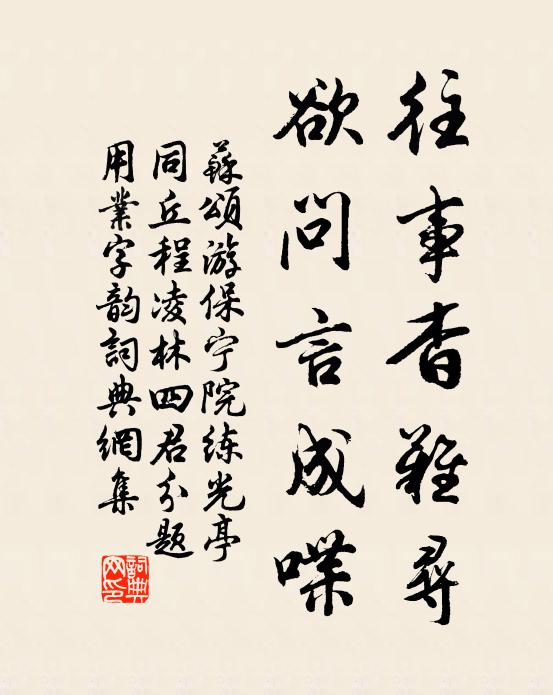 往事杳難尋
欲問言成喋
蘇頌游保宁院练光亭
同丘程凌林四君分题
用業字韵詞典網集
詞典網印